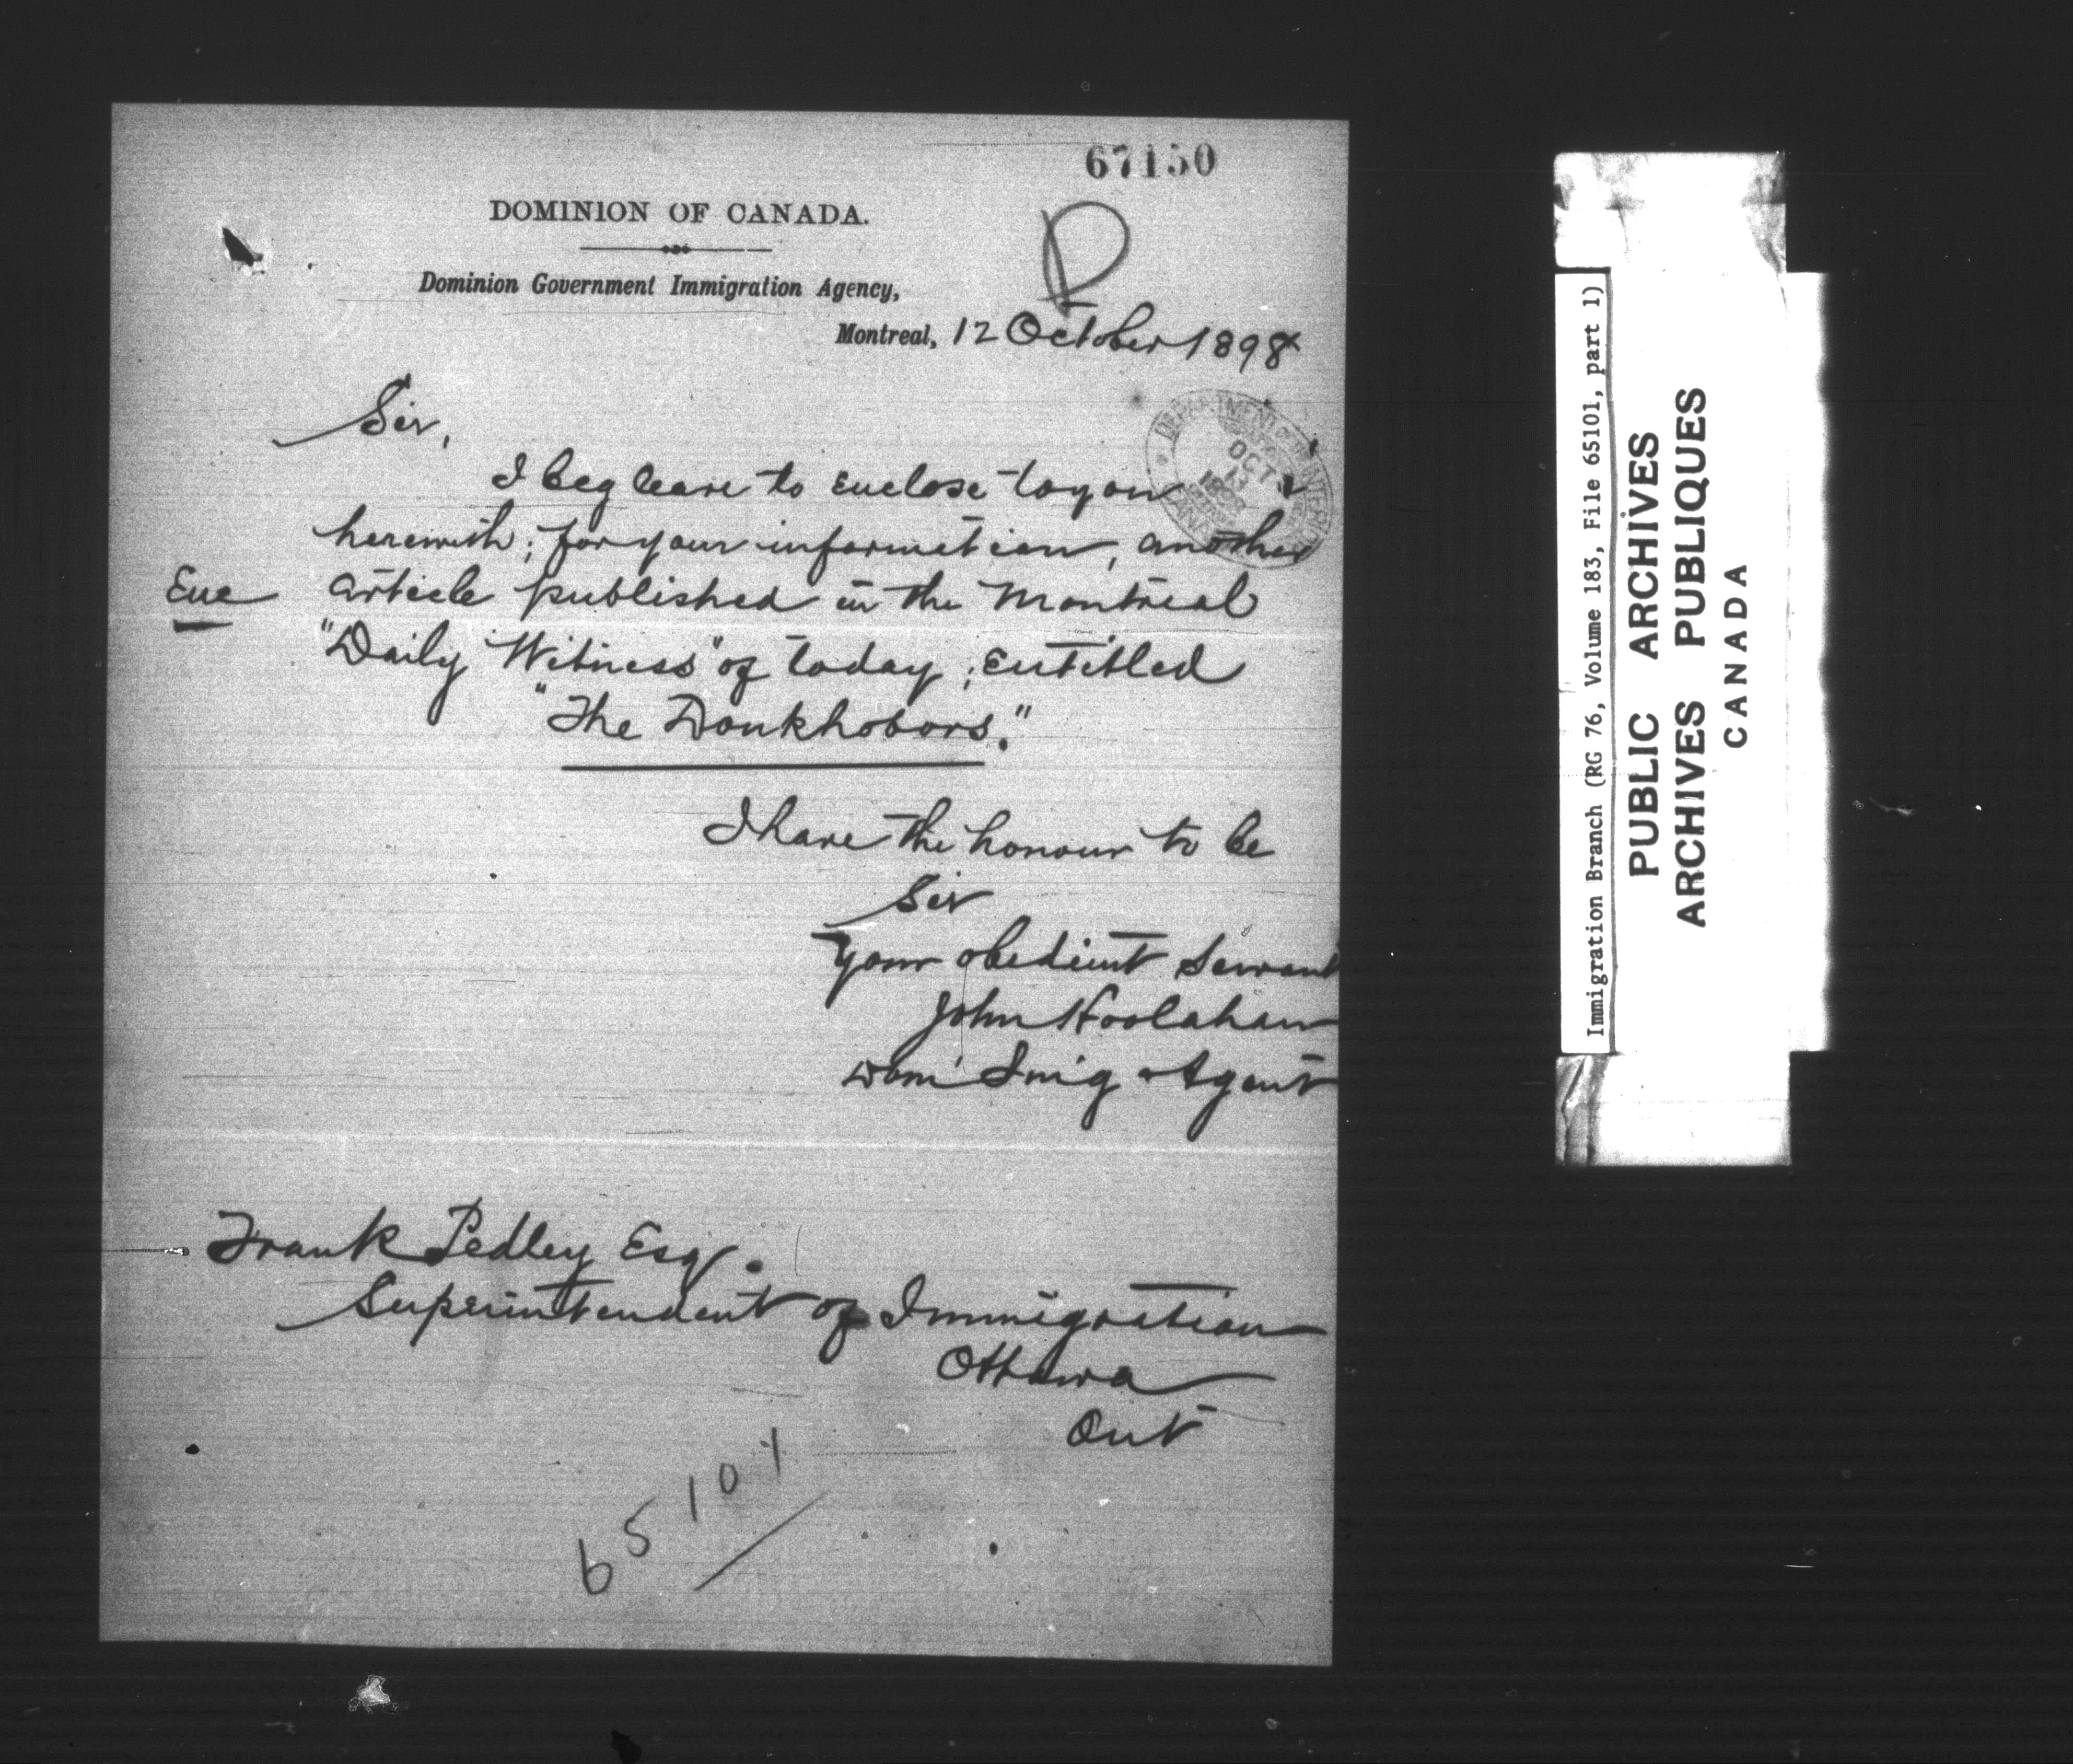 67150
DOMINION OF CANADA.
Dominion Government Immigration Agency,
P
Montreal, 12 October 1898
DEPARTMENT OF THE INTERIOR
OCT 13
1898
CANADA
Sir,
I beg leave to enclose to you
herewith; for your information, another
Enc article published in the Montreal
"Daily Witness" of today; entitled
"The Doukhobors."
I have the honour to be
Sir
Your obedient Servant
John Hoolahan
Dom' Im'g Agent
Frank Pedley Esqr.
Superintendent of Immigration
Ottawa
Ont
65101
Immigration Branch (RG 76, Volume 183, File 65101, part 1)
PUBLIC ARCHIVES
ARCHIVES PUBLIQUES
CANADA